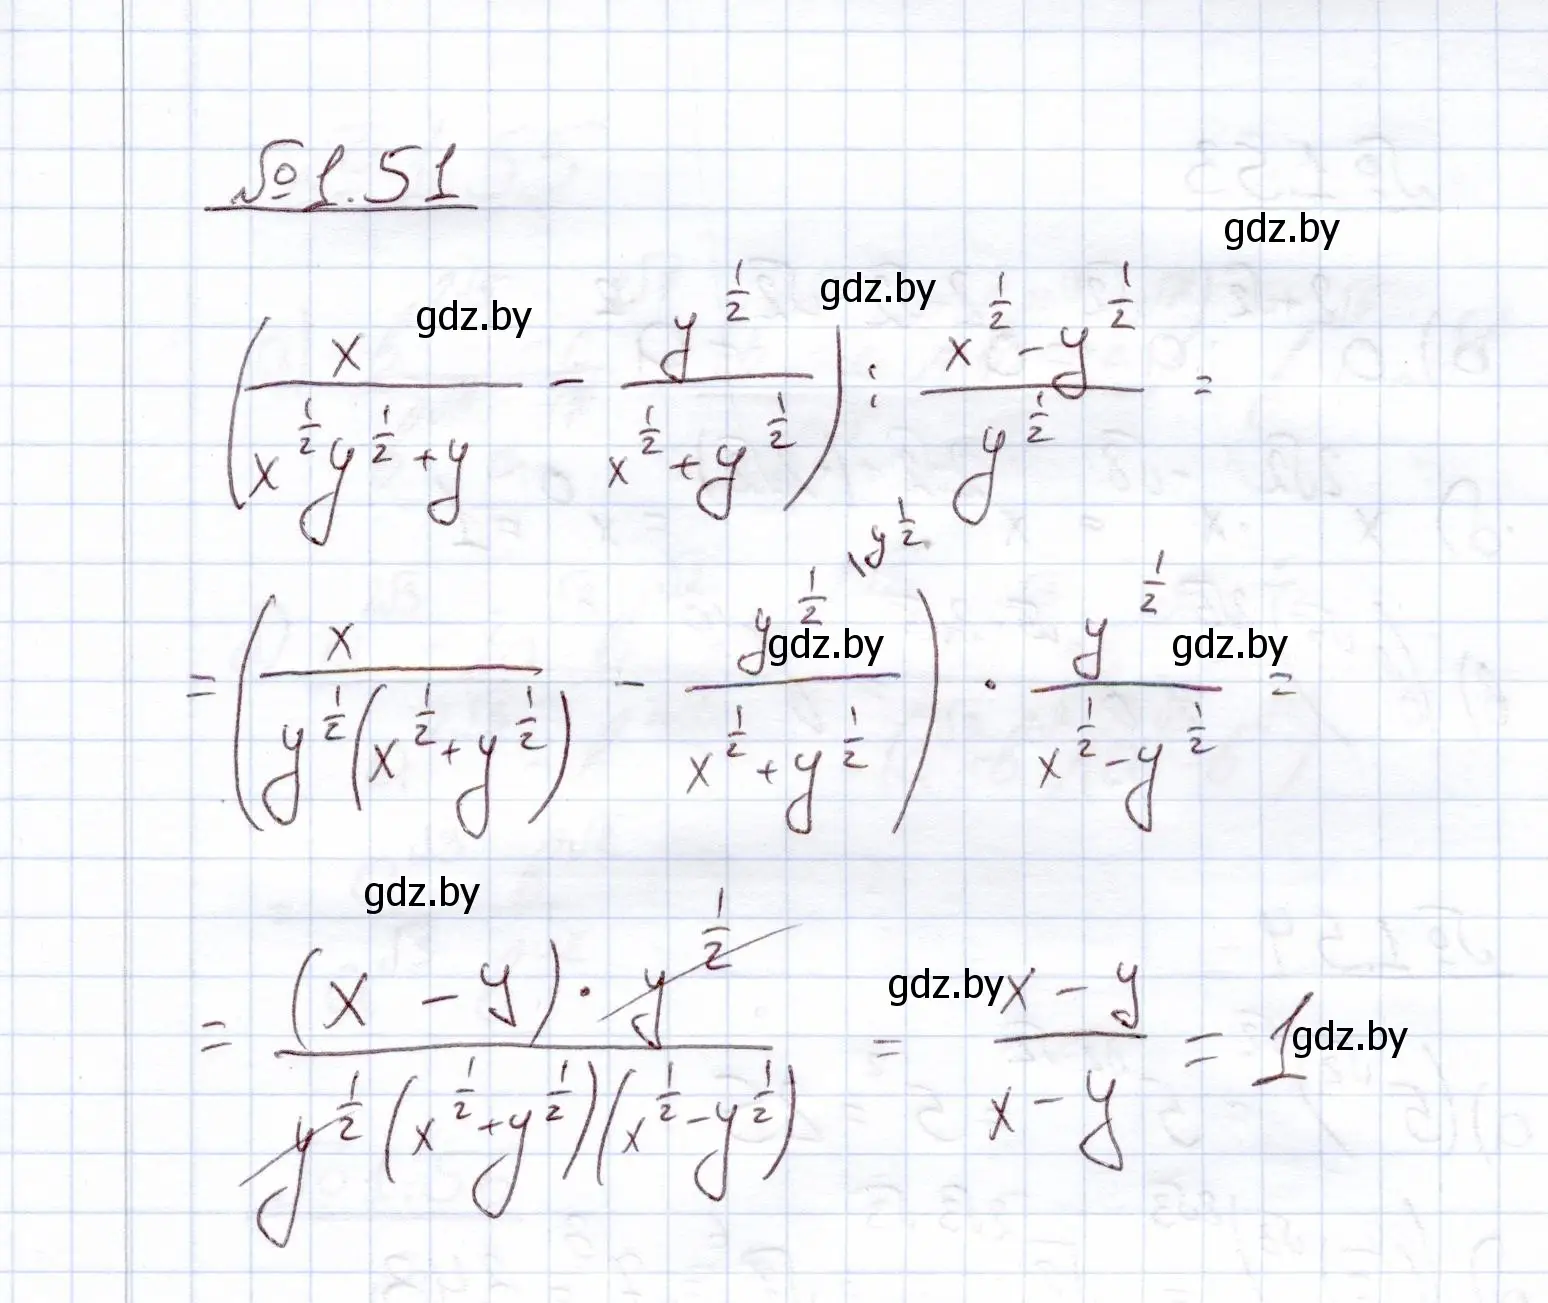 №1.51
gdz.by
gdz.by gdz.by
(x/(x^(1/2)y^(1/2)+y) - y^(1/2)/(x^(1/2)+y^(1/2))) : (x^(1/2)-y^(1/2))/y^(1/2) =
= (x/(y^(1/2)(x^(1/2)+y^(1/2))) - y^(1/2)\y^(1/2)/(x^(1/2)+y^(1/2))) · y^(1/2)/(x^(1/2)-y^(1/2)) =
gdz.by gdz.by
gdz.by
= ((x - y)·y^(1/2))/(y^(1/2)(x^(1/2)+y^(1/2))(x^(1/2)-y^(1/2))) = (x - y)/(x - y) = 1
gdz.by gdz.by